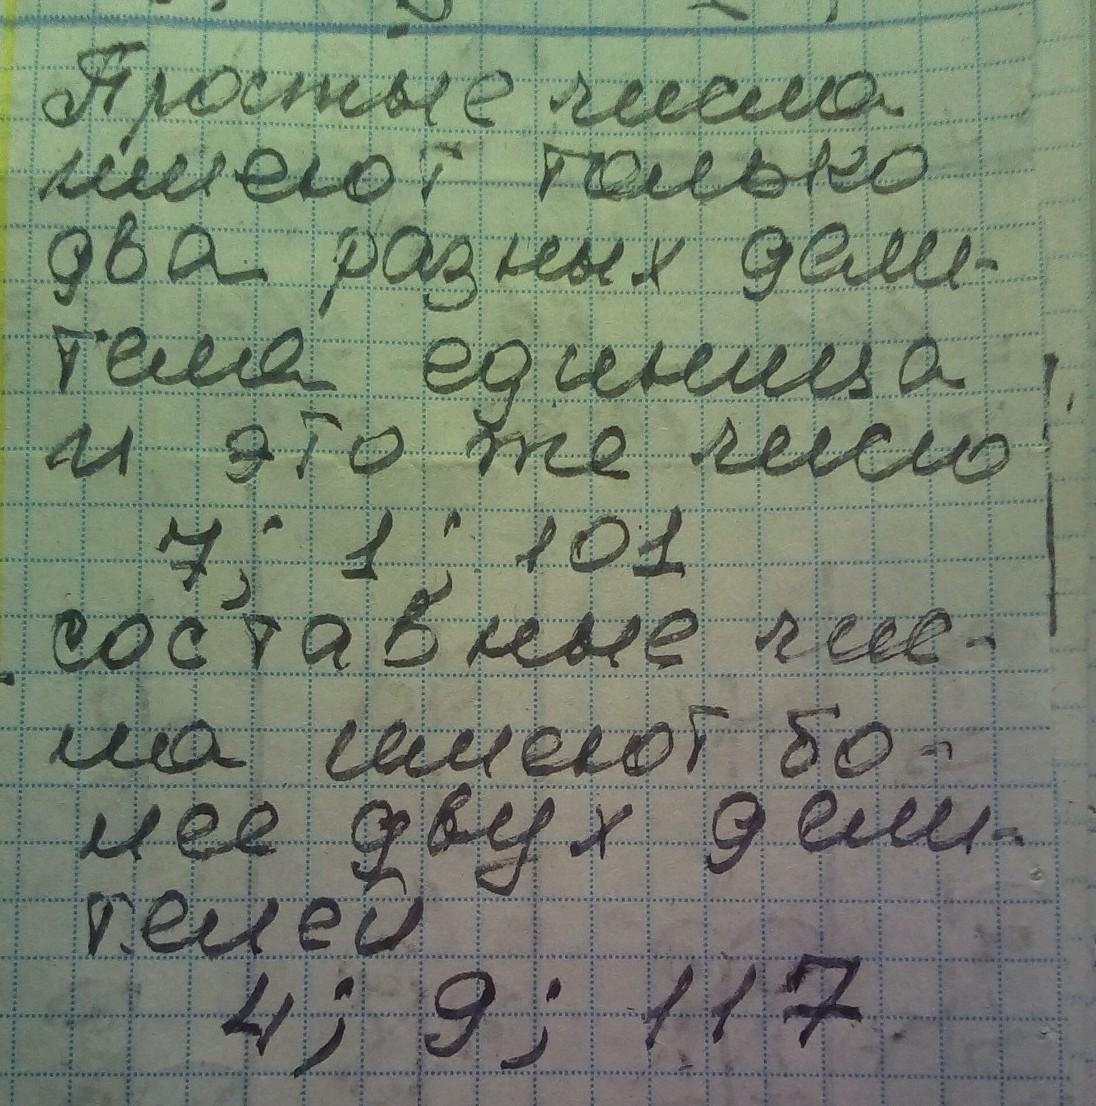 Простые числа
имеют только
два разных дели-
теля единица
и это же число
7; 1; 101
составные чис-
ла имеют бо-
лее двух дели-
телей
4; 9; 117